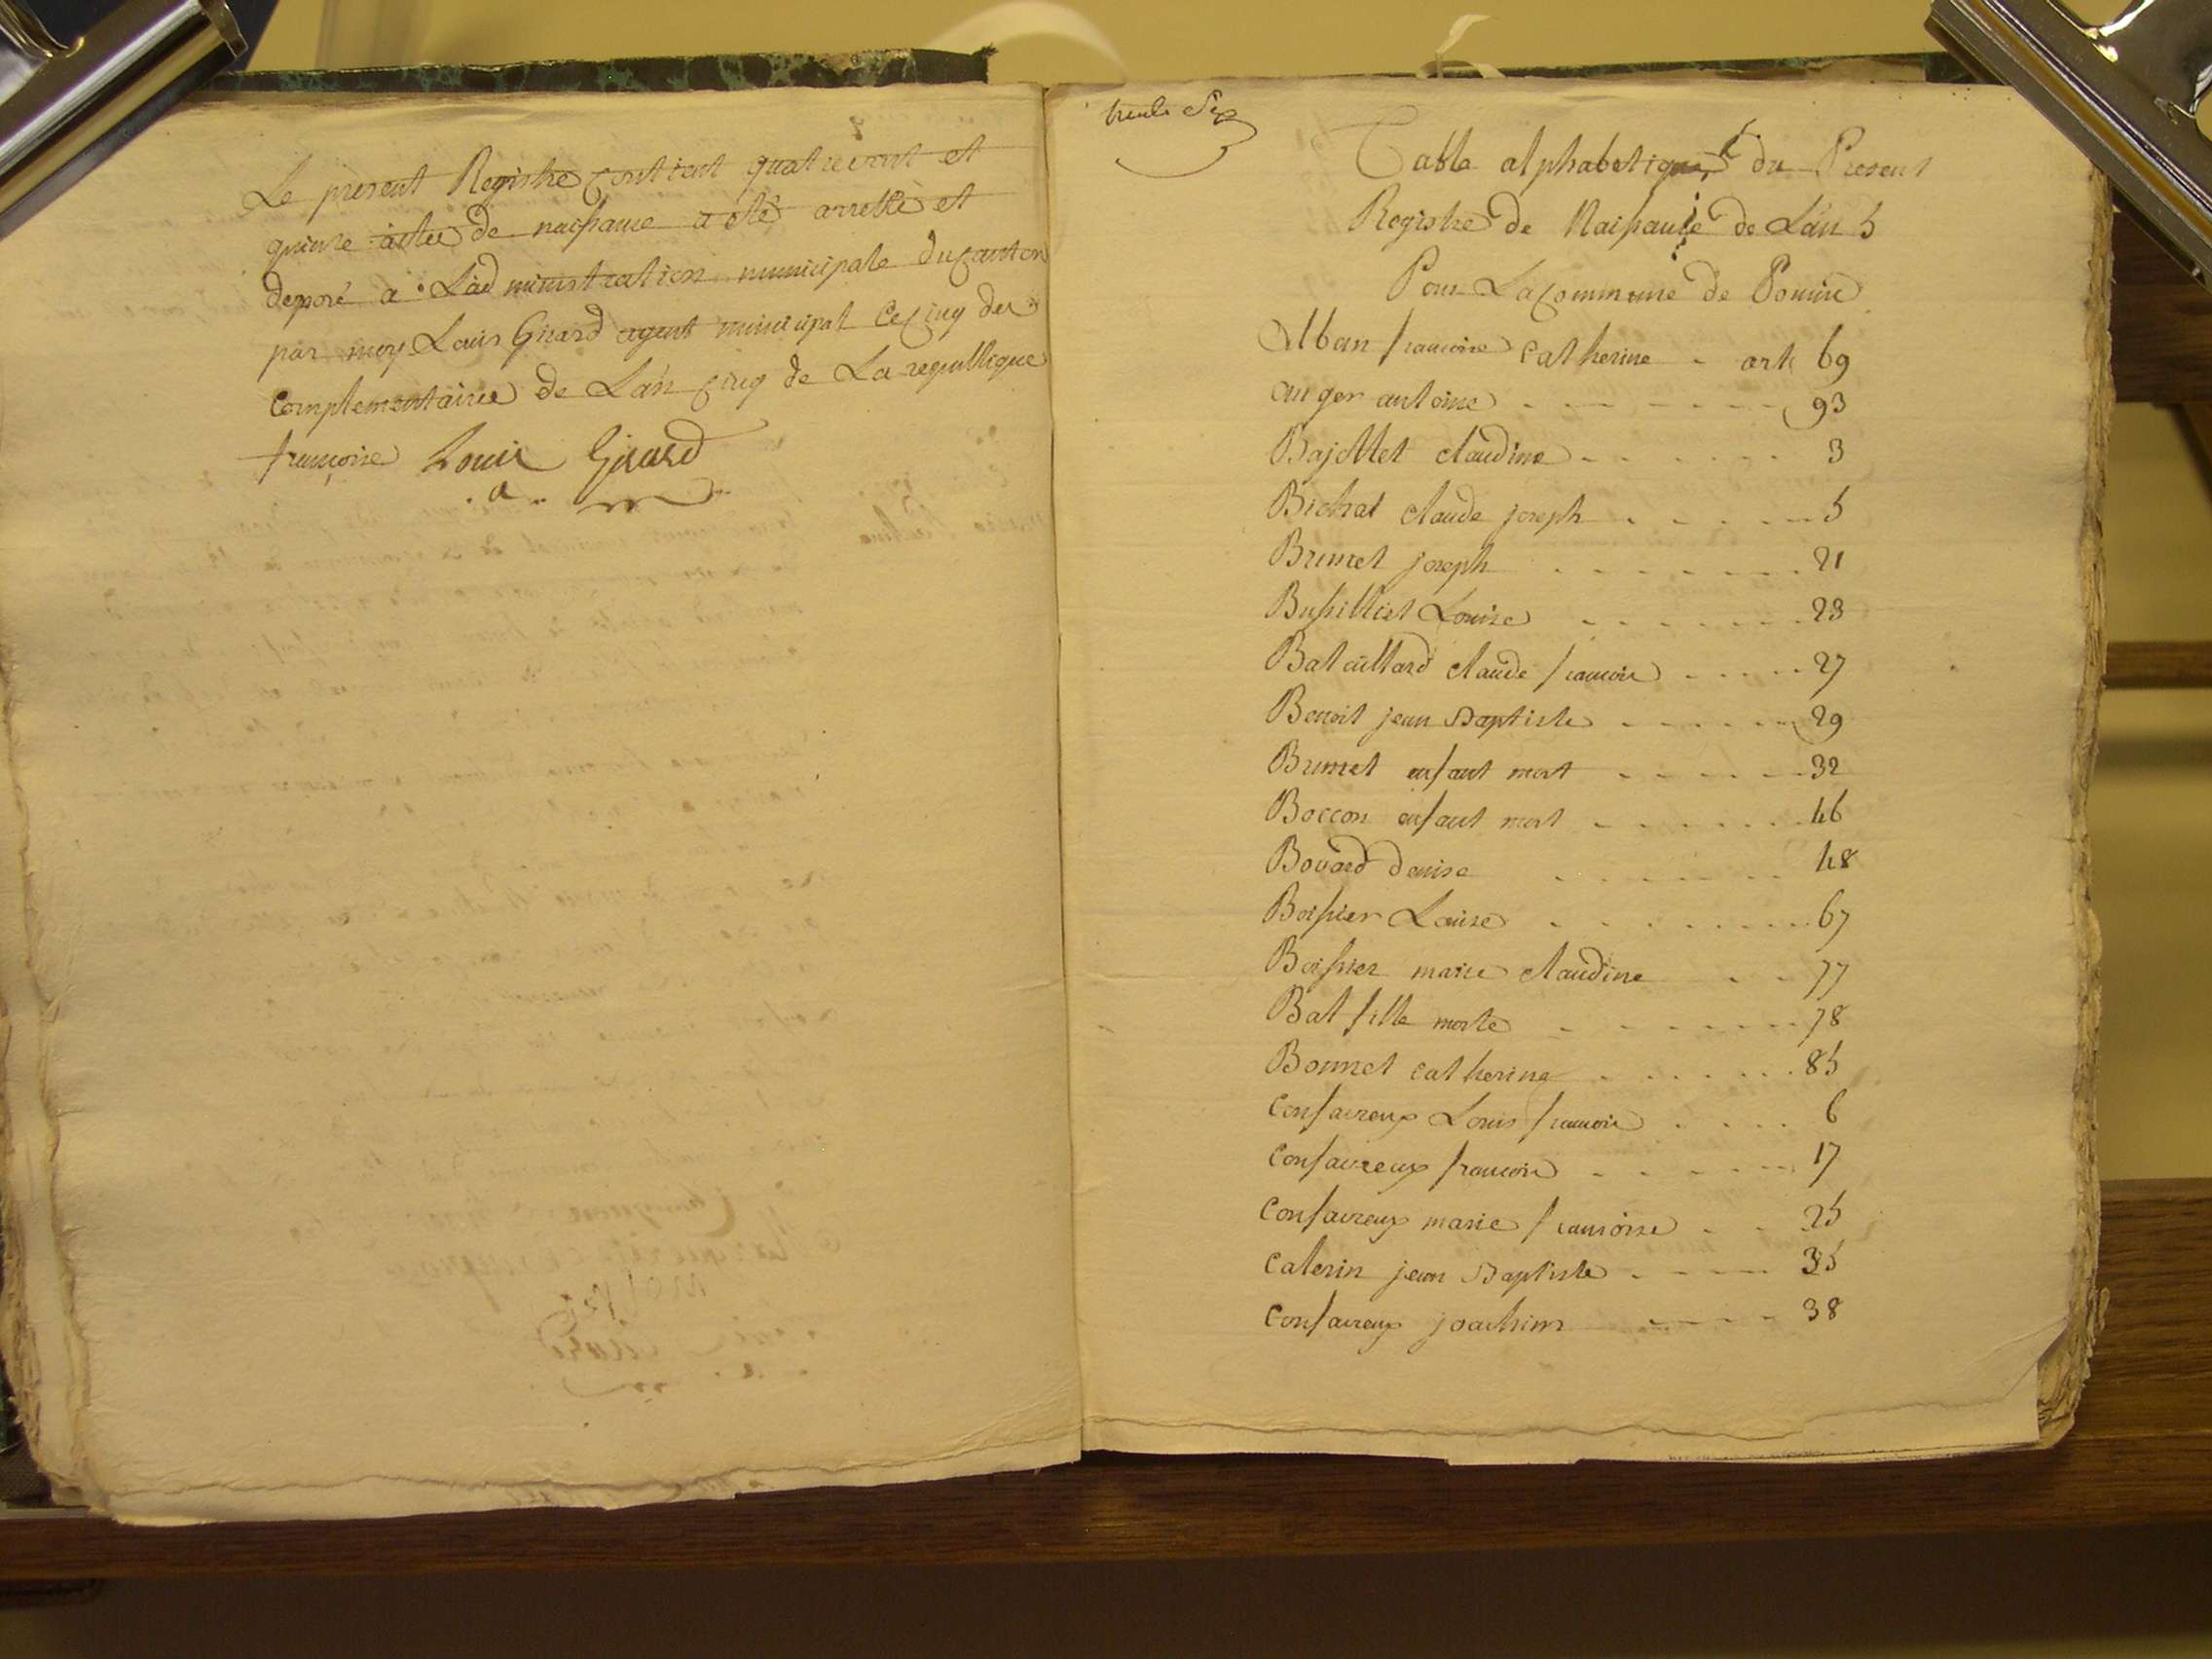 Le present Registre contient quatrevint et
quinze actes de naissance a eté arretté et
deposé a L'administration municipale du canton
par moy Louis Girard agent municipal ce cinq des
complementaires de L'an cinq de La republique
françoise Louis Girard
trente Six
Table alphabetique du Present
Registre de Naissance de L'an 5
Pour La commune de
Alban francoise catherine - art 69
auger antoine 93
Bajollet claudine 3
Bichat claude joseph 5
Brunet joseph 21
Bussilliet Louise 23
Bataillard claude francois 27
Benoit jean Baptiste 29
Brunet enfant mort 32
Boccon enfant mort 46
Bouard denise 48
Boissier Louise 67
Boissier marie claudine 77
Bat fille morte 78
Bonnet catherine 85
Confavreux Louis francois 6
Confavreux francois 17
Confavreux marie francoise 25
Caterin jean Baptiste 35
Confavreux joachim 38